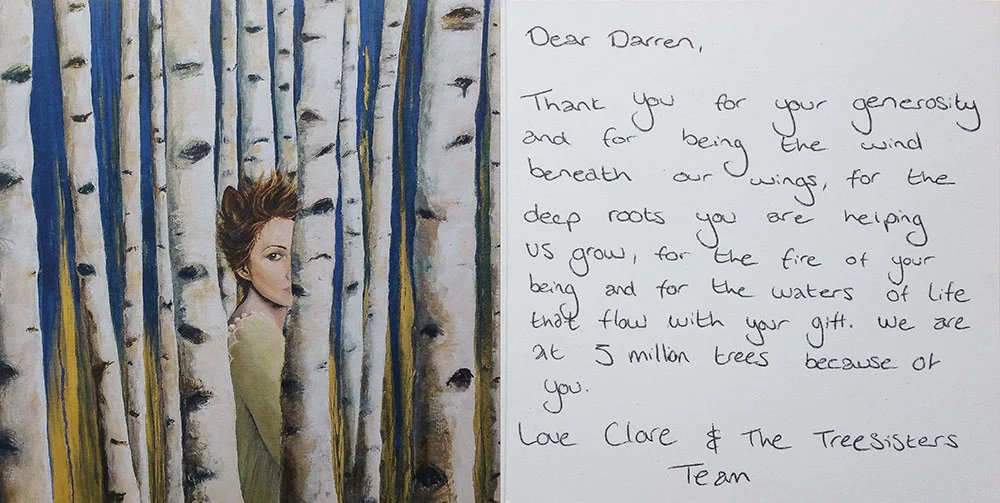 Dear Darren,
Thank you for your generosity
and for being the wind
beneath our wings, for the
deep roots you are helping
us grow, for the fire of your
being and for the waters of life
that flow with your gift. We are
at 5 million trees because of
you.
Love Clare & The TreeSisters
Team